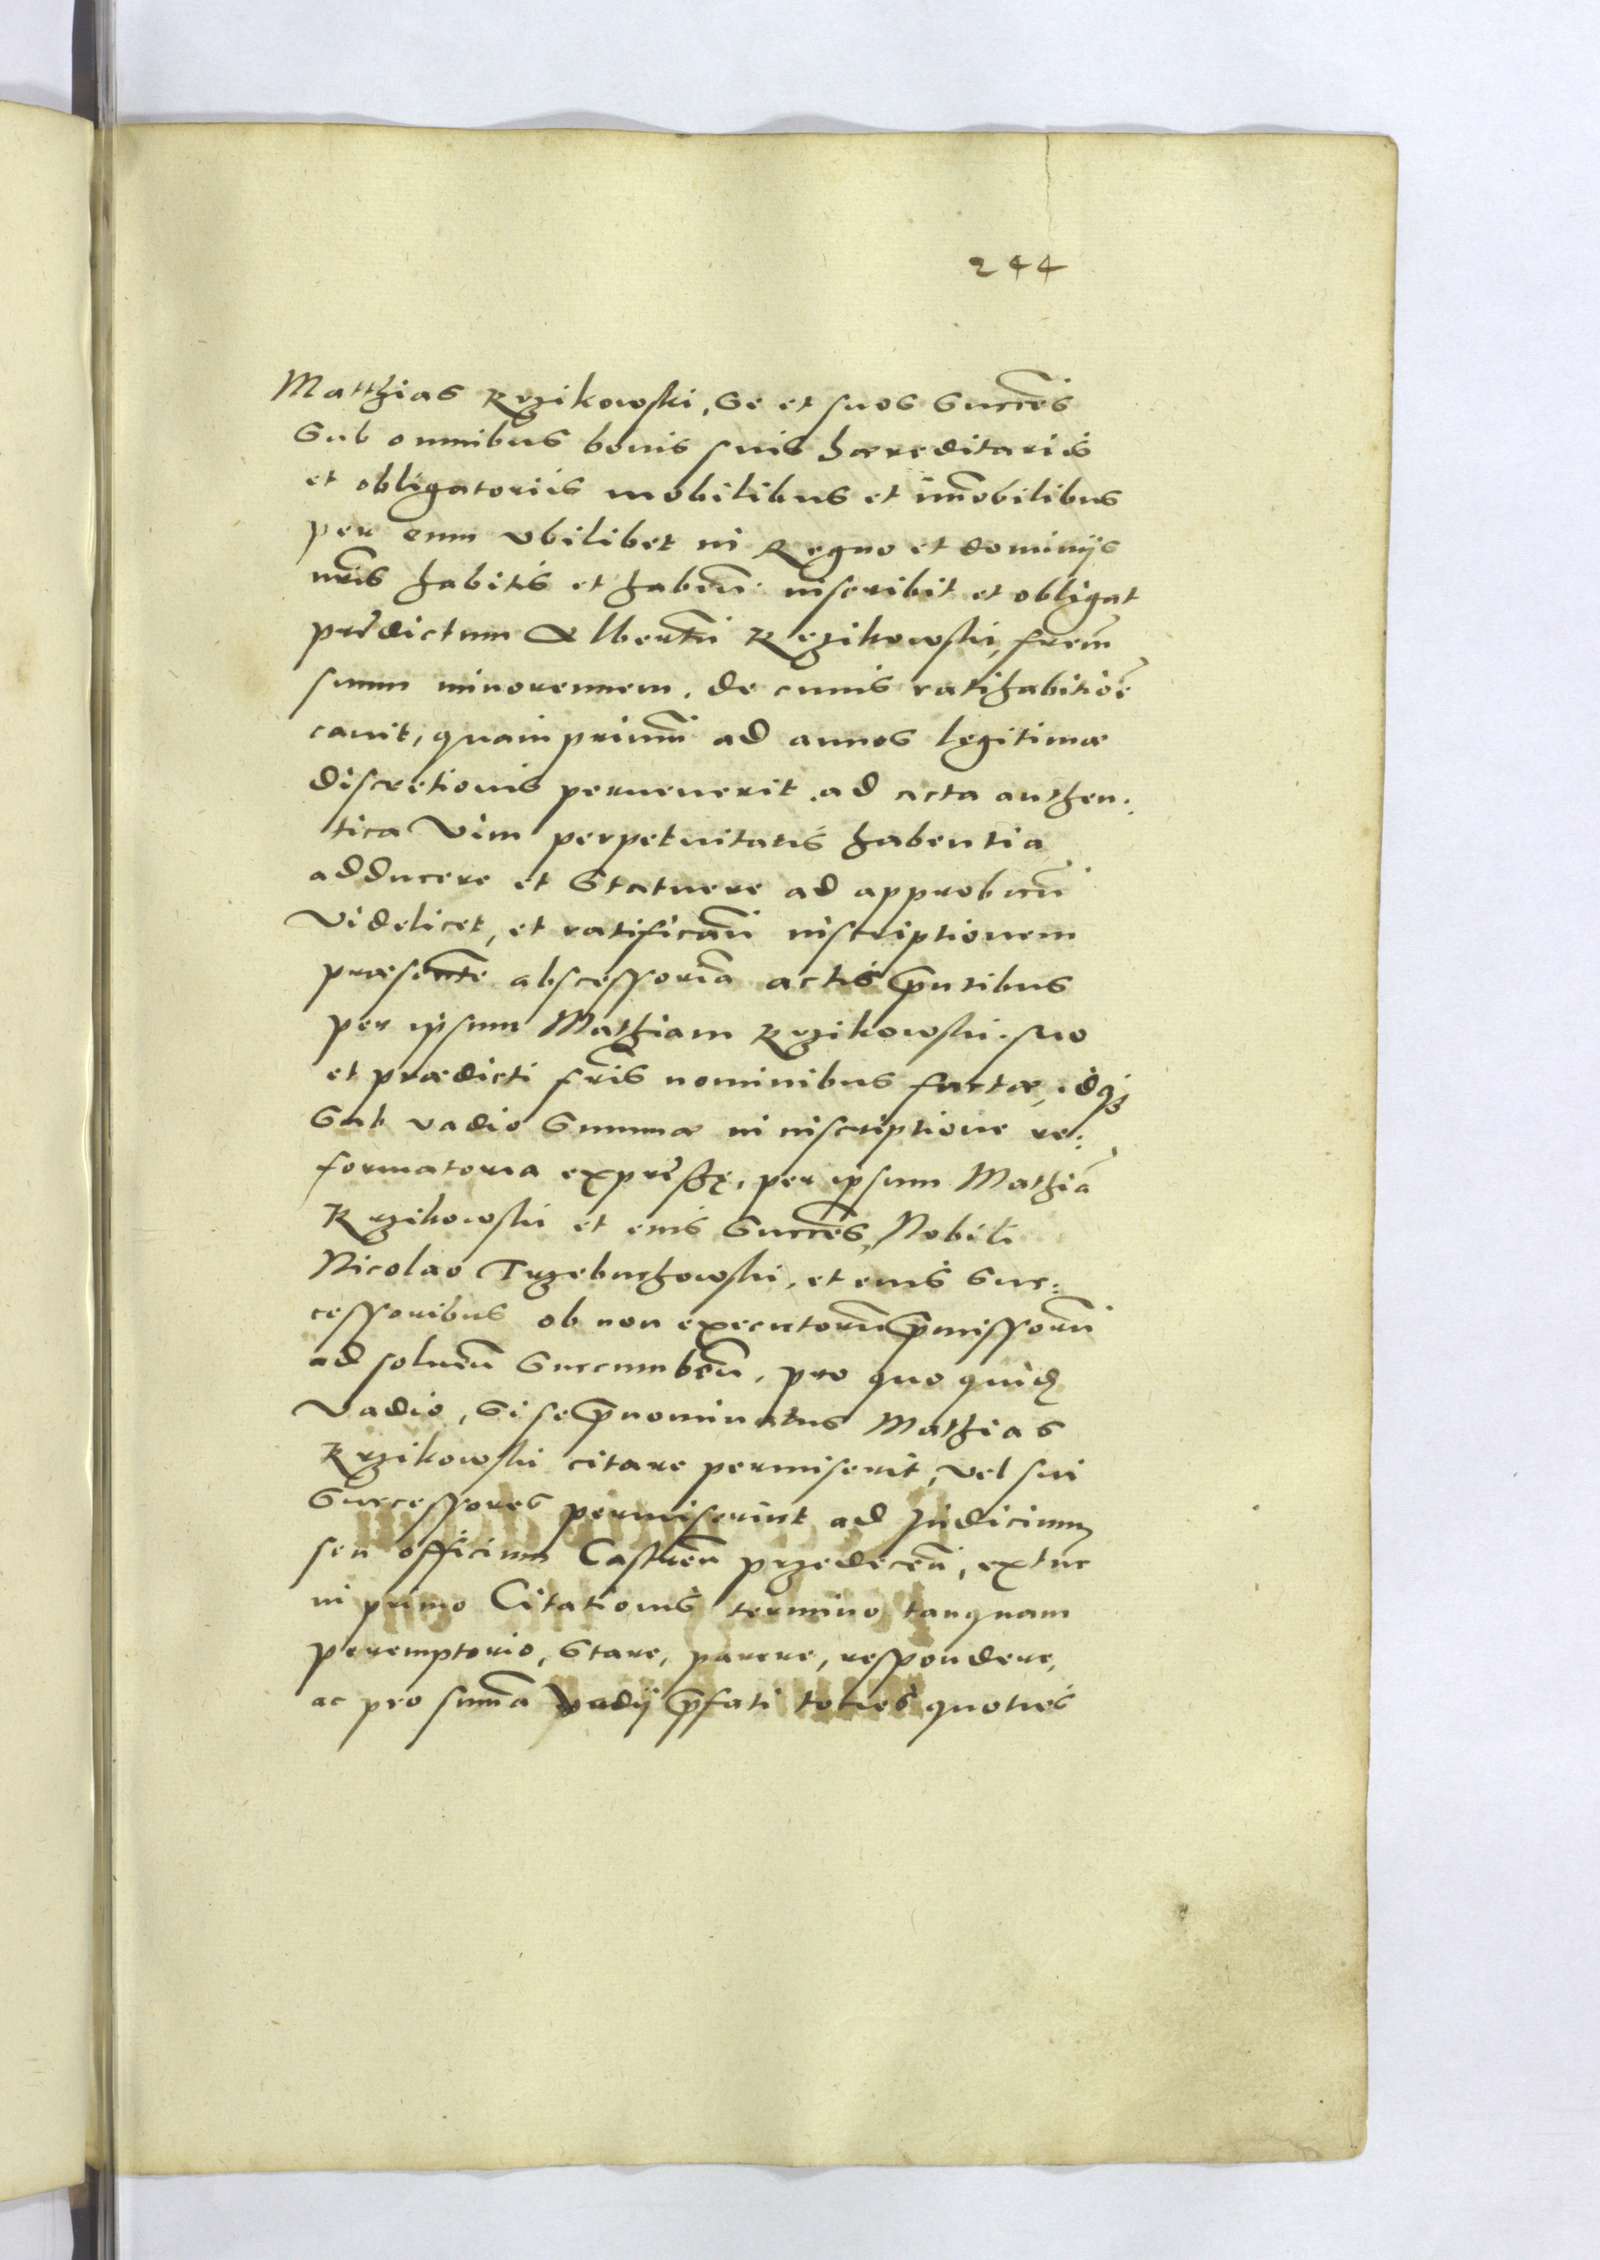 244
Matthias Rzikowski, Se et suos Succes̃
Sub omnibus bonis suis hæreditariis
et obligatoriis mobilibus et im̃obilibus
per eum vbilibet in Regno et dominijs
nr̃is habitis et habeñ: inscribit et obligat
prædictum Albertũ Rzikowski, frem̃
suum minorennem, de cuius ratihabitiõe
cauit, quamprimũ ad annos legitimæ
discretionis peruenerit, ad acta authen:
tica vim perpetuitatis habentia
adducere et Statuere ad approbañ
videlicet, et ratificañ inscriptionem
præsente abscessoriã actis p̃ntibus
per ipsum Mathiam Rzikowski, suo
et prædicti fr̃is nominibus factæ, idq́ꝫ
Sub vadio Summæ in inscriptione re:
formatoria expressę, per ipsum Mathiã
Rzikowski et eius Succes̃, Nobili
Nicolao Trzebuchowski, et eius Suc:
cessoribus ob non executorũ p̃missorũ
ad solueñ Succumbeñ, pro quo quid̃
vadio, Si se p̃nominatus Mathias
Rzikowski citare permiserit, vel sui
Successores permiserint ad Judicium
seu officium Castreñ przedeceñ, extunc
in primo Citationis termino tanquam
peremptorio, Stare, parere, respondere,
ac pro sum̃a Vadij p̃fati toties quoties